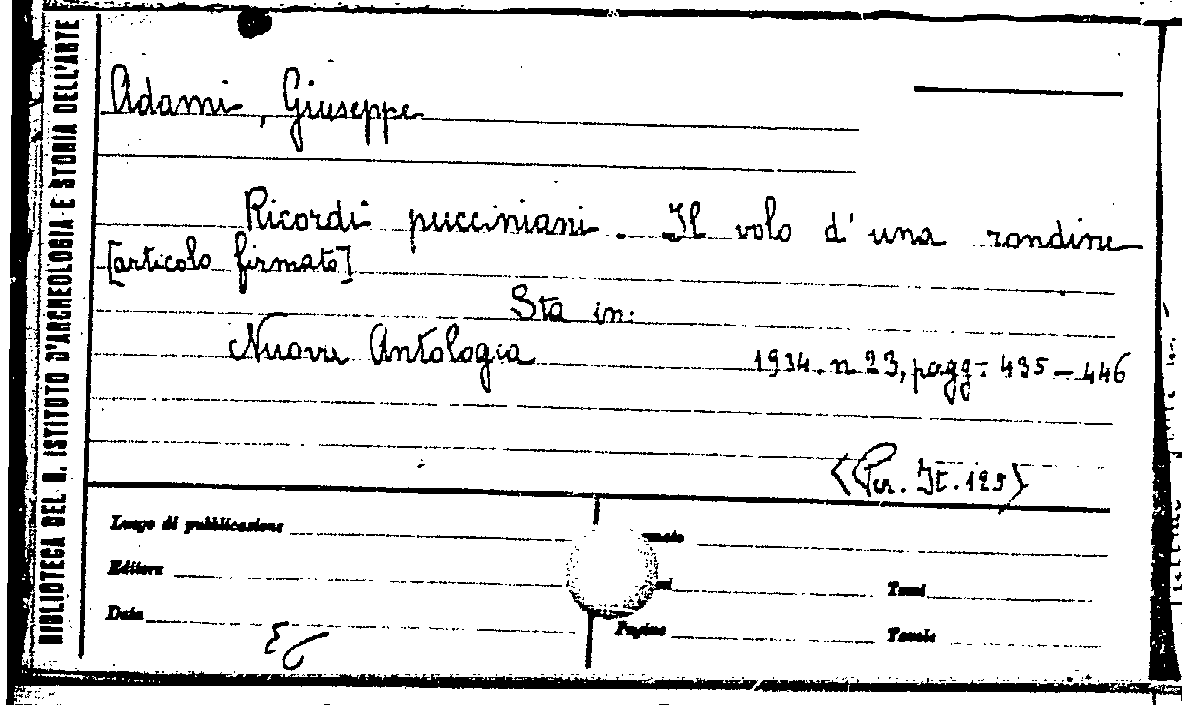 BIBLIOTECA DEL R. ISTITUTO D'ARCHEOLOGIA E STORIA DELL'ARTE
Adami, Giuseppe
Ricordi pucciniani. Il volo d'una rondine
[articolo firmato]
Sta in:
Nuova Antologia 1934. n 23, pagg. 435-446
(Per. It. 125)
Luogo di pubblicazione
Editore Tomi
Data Pagine Tavole